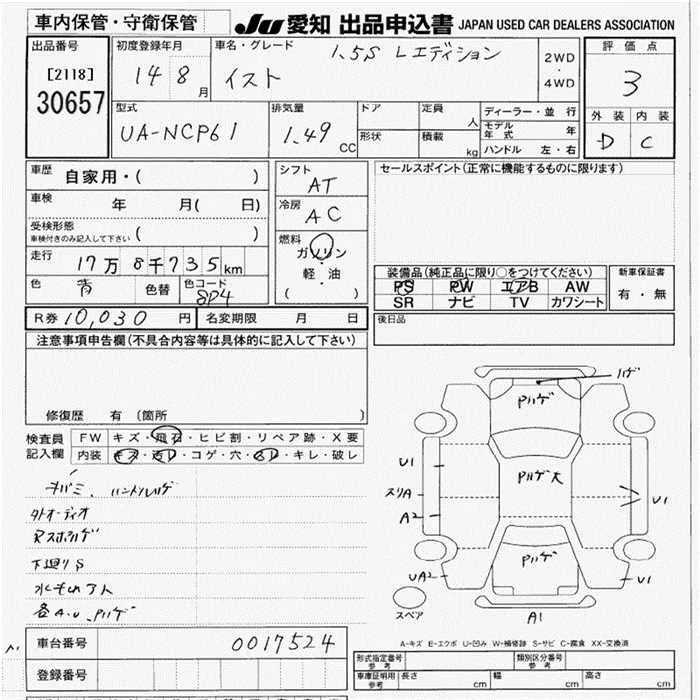 車内保管・守衛保管
JU 愛知 出品申込書 JAPAN USED CAR DEALERS ASSOCIATION
出品番号
[2118]
30657
初度登録年月
14 8 月
車名・グレード
1.5S Lエディション
イスト
2WD
・
4WD
評価点
3
外装 内装
D C
型式
UA-NCP61
排気量
1.49 CC
ドア
形状
定員
人
積載
kg
ディーラー・並行
モデル年式 年
ハンドル 左・右
車歴 自家用・( )
車検 年 月( 日)
受検形態
車検付きのみ記入して下さい ( )
走行 17万8千735km
色 青 色替 色コード 8P4
シフト
AT
冷房
AC
燃料
ガソリン
軽・油
( )
セールスポイント(正常に機能するものに限ります)
装備品(純正品に限り○をつけてください)
PS PW エアB AW
SR ナビ TV カワシート
新車保証書
有・無
R券 10,030 円 名変期限 月 日
後日品
注意事項申告欄(不具合内容等は具体的に記入して下さい)
修復歴 有 (箇所 )
検査員記入欄
FW キズ・飛石・ヒビ割・リペア跡・X要
内装 キズ・汚レ・コゲ・穴・スレ・キレ・破レ
キバミ、ハンドルハゲ
外オーディオ
Rスポハゲ
下廻りS
各A.U、Pハゲ
ハゲ
Pハゲ
U1
スリA
A2
Pハゲ大
U1
Pハゲ
UA2
U1
スペア
A1
A-キズ E-エクボ U-凹み W-補修跡 S-サビ C-腐食 XX-交換済
車台番号 0017524
登録番号
形式指定番号 参考
類別区分番号 参考
車庫証明用 参考 長さ cm 幅 cm 高さ cm